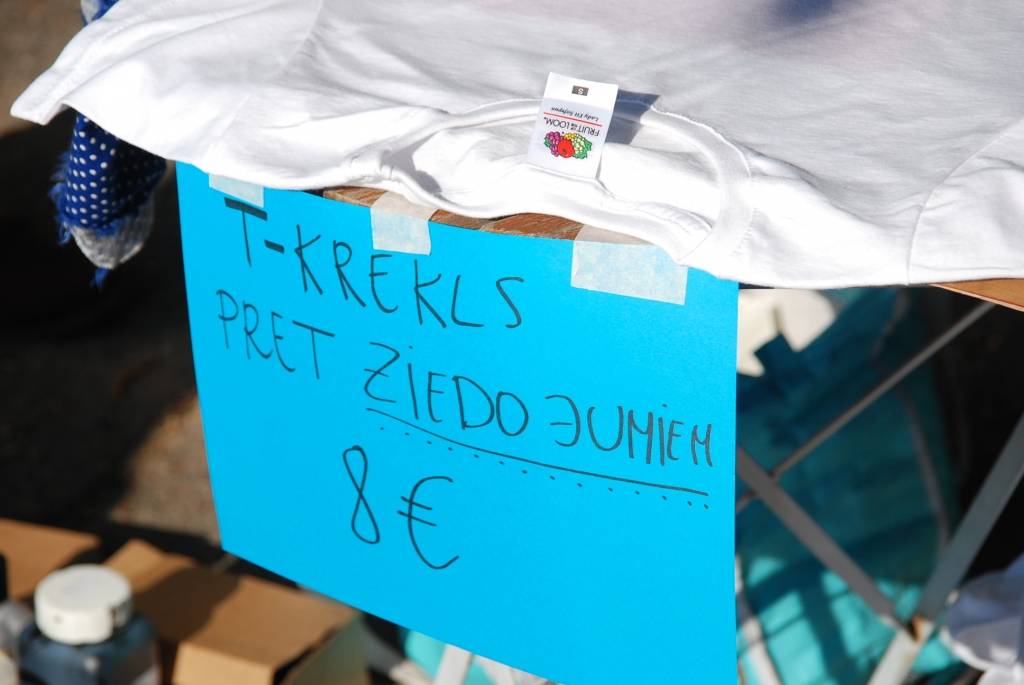 S
Lady Fit
FRUIT OF THE LOOM.
T-KREKLS
PRET ZIEDOJUMIEM
8 €